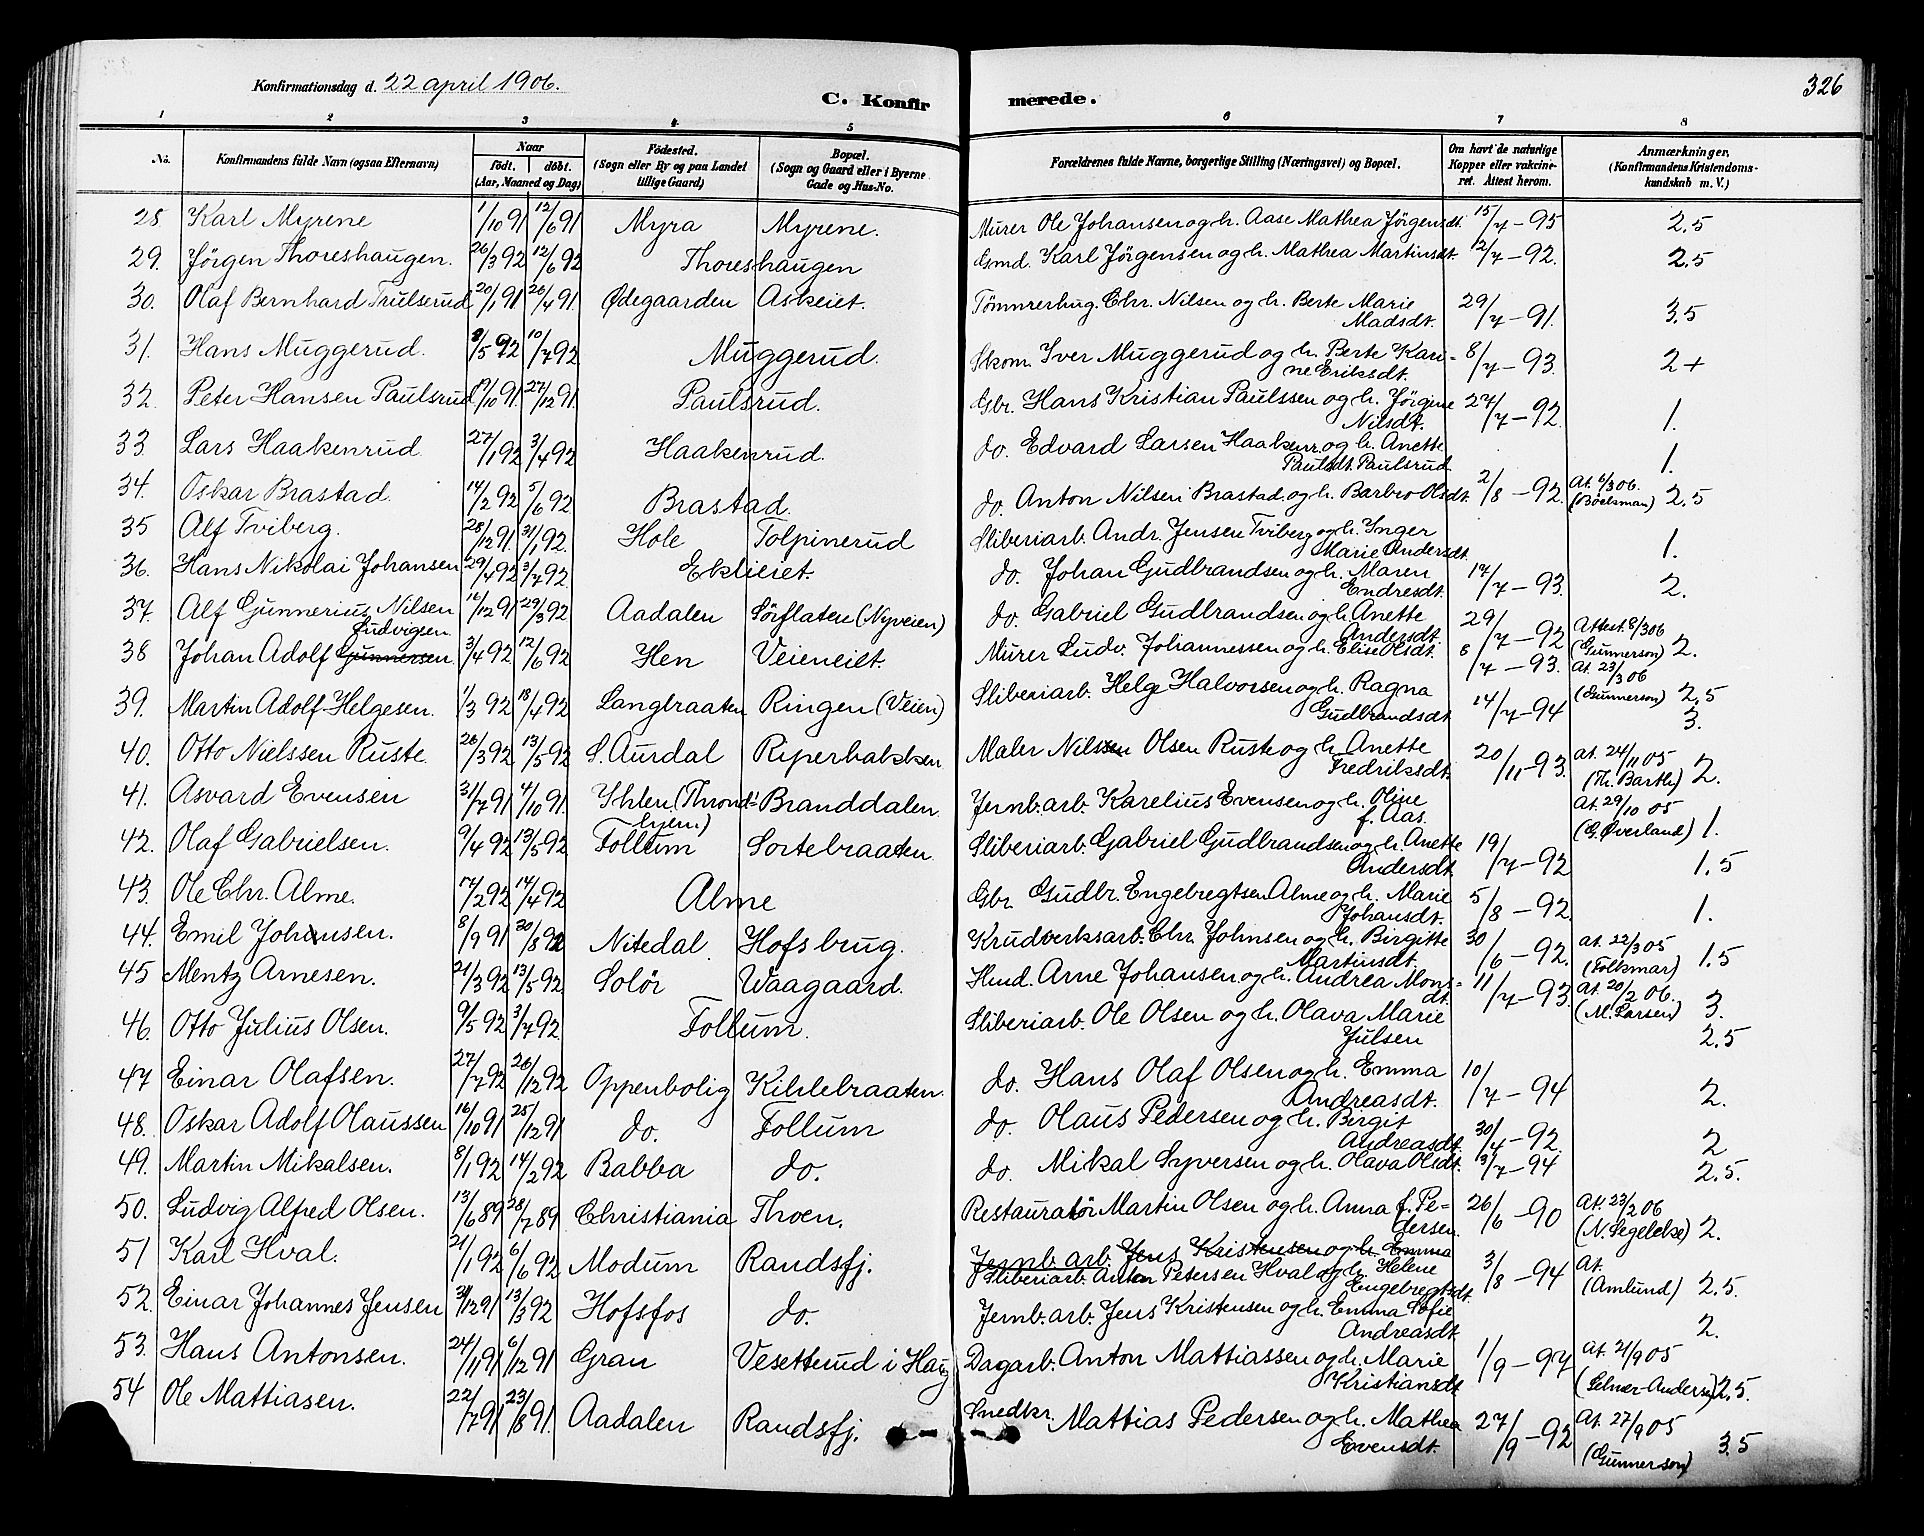 Konfirmationsdag d. 22 april 1906.
C. Konfir merede.
326
1 2 3 4 5 6 7 8
No. Konfirmandens fulde Navn (ogsaa Efternavn) Naar født. døbt. (Aar, Maaned og Dag) Födested. (Sogn eller By og paa Landet tillige Gaard) Bopæl. (Sogn og Gaard eller i Byerne Gade og Hus-No. Forældrenes fulde Navne, borgerlige Stilling (Næringsvei) og Bopæl. Om havt de naturlige Kopper eller vakcineret. Attest herom. Anmærkninger, (Konfirmandens Kristendomskundskab m. V.)
28 Karl Myrene 1/10 91 12/6 91 Myra Myrene. Murer Ole Johansen og h. Aase Mathea Jörgensdt. 15/7 - 95 2.5
29. Jörgen Thoreshaugen. 26/3 92 12/6 92 Thoreshaugen Gmd. Karl Jörgensen og h. Mathea Martinsdt. 12/7 - 92. 2.5
30. Olaf Bernhard Trulserud 20/1 91 26/4 91. Ødegaarden Askeiet. Tömmrerhug. Chr. Nilsen og h. Berte Marie Madsdt. 29/7 - 91. 3.5
31. Hans Muggerud. 8/5 92 10/7 92 Muggerud. Skom. Iver Muggerud og h. Berte Karine Eriksdt. 8/7 - 93. 2+
32. Peter Hansen Paulsrud 19/10 91. 27/12 91. Paulsrud. Gbr. Hans Kristian Paulssen og h. Jörgine Nilsdt. 27/7 - 92. 1.
33 Lars Haakenrud. 27/1 92 3/4 92 Haakenrud. do. Edvard Larsen Haakenr. og h. Anette Paulsdt. Paulsrud 1.
34. Oskar Brastad. 14/2 92 5/6 92 Brastad. do. Anton Nilsen Brastad og h. Barbro Olsdt. 2/8 - 92. At. 6/3 06. (Böelsman) 2.5
35 Alf Tviberg. 28/12 91. 31/1 92. Hole Tolpinerud Sliberiarb. Andr. Jensen Tviberg og h. Inger Marie Andersdt. 1.
36. Hans Nikolai Johansen 29/4 92 3/7 92. Eklieiet. do. Johan Gudbrandsen og h. Maren Endresdt. 17/7 - 93. 2.
37. Alf Gunnerius Nilsen 16/12 91 29/3 92 Aadalen Sörflaten (Nyveien) do. Gabriel Gudbrandsen og h. Anette Andersdt. 29/7 - 92 Attest. 8/3 06 (Gunnerson) 2.
38 Johan Adolf Gunnersen Ludvigsen 3/4 92 12/6 92 Hen Veieneiet. Murer Ludv. Johannessen og h. Elise Olsdt. 8/7 - 93. At. 23/3 06 (Gunnerson) 2.5
39. Martin Adolf Helgesen. 1/3 92 18/4 92 Langbraaten Ringen (Veien) Sliberiarb. Helge Halvorsen og h. Ragna Gudbrandsdt. 14/7 - 94 3.
40. Otto Nielssen Ruste. 26/3 92 13/5 92 S. Aurdal Riperbakken Maler Nilssen Olsen Ruste og h. Anette Fredriksdt. 20/11 - 93. at. 24/11 05 (Th. Barth) 2.
41. Asvard Evensen 31/7 91 4/10 91. Ihlen (Throndhjem) Branddalen Jernb. arb. Karelius Evensen og h. Oline f. Aas. At. 29/10 05 (G. Överland) 1.
42. Olaf Gabrielsen. 9/4 92 13/5 92 Follum Sortebraaten. Sliberiarb. Gabriel Gudbrandsen og h. Anette Andersdt. 19/7 - 92 1.5
43. Ole Chr. Alme. 17/2 92 14/4 92 Alme Gbr. Gudbr. Engebregtsen Alme og h. Marie Johansdt. 5/8 - 92. 1.
44. Emil Johnsen. 8/9 91 30/8 92 Nitedal Hofsbrug. Krudverksarb. Chr. Johnsen og h. Birgitte Martinsdt. 30/6 - 92. at. 22/3 05 (Folkmar) 1.5
45 Mentz Arnesen. 21/3 92 13/5 92 Solör Waagaard. Hmd. Arne Johansen og h. Andrea Monsdt. 11/7 - 93. At. 20/2 06. (M. Larsen) 3.
46. Otto Julius Olsen. 9/5 92 3/7 92. Follum. Sliberiarb. Ole Olsen og h. Olava Marie Julsen 2.5
47 Einar Olafsen. 27/7 92 26/12 92 Oppenbolig Kihlebraaten. do. Hans Olaf Olsen og h. Emma Andreasdt. 10/7 - 94 2.
48. Oskar Adolf Olaussen 16/10 91 25/12 91 do. Follum do. Olaus Pedersen og h. Birgit Andreasdt. 30/4 - 92. 2
49. Martin Mikalsen. 8/1 92 14/2 92 Babba do. do. Mikal Syversen og h. Olava Olsdt. 3/7 - 94 2.5.
50. Ludvig Alfred Olsen. 13/6 89 28/7 89 Christiania Thoen. Restauratör Martin Olsen og h. Anna f. Pedersen. 26/6 - 90 At. 23/2 06 (N. Segelcke) 2.
51 Karl Hval. 21/1 92 6/6 92 Modum Randsfj. Jernb. arb. Jens Kristensen og h. Emma
Sliberiarb. Anton Petersen Hval og h. Helene Engebregtsdt. 3/8 - 94 At. (Amlund) 2.5.
52. Einar Johannes Jensen 31/12 91 13/3 92 Hofsfos do. Jernb. arb. Jens Kristensen og h. Emma Sofie Andreasdt. 2.
53. Hans Antonsen. 24/11 91 6/12 91 Gran Vesetterud i Haug Dagarb. Anton Mattiassen og h. Marie Kristiansdt. 1/9 - 97 At. 21/9 05 (Selmer-Anders) 2.5.
54 Ole Mattiasen. 22/7 91 23/8 91. Aadalen Randsfj. Snedkr. Mattias Pedersen og h. Mathea Evensdt. 27/9 - 92 At. 27/9 05 (Gunnerson) 3.5